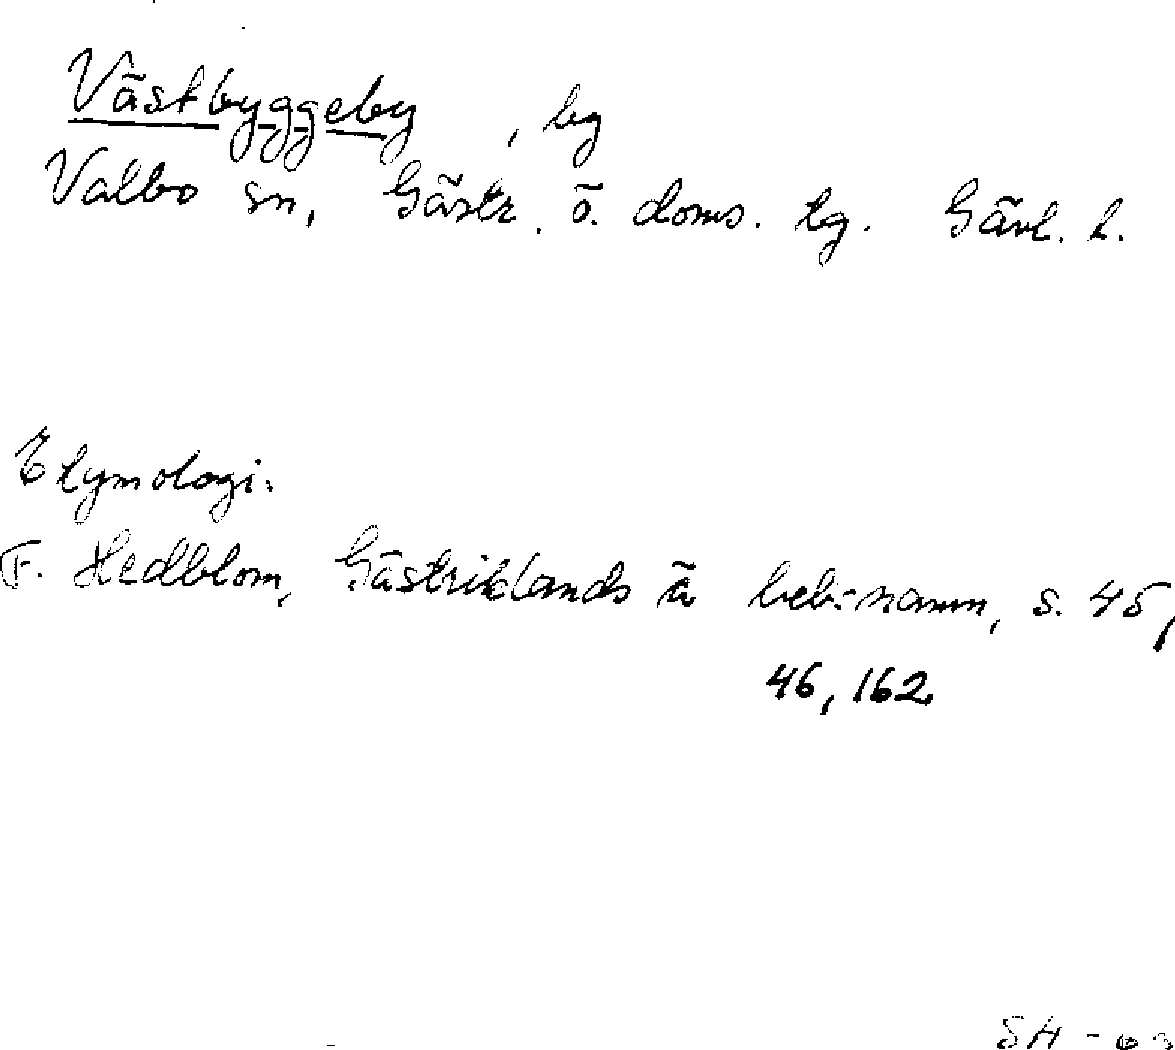 Västbyggeby, by
Valbo sn, Gästr. ö. doms. tg. Gävl. l.
Etymologi.
F. Hedblom, Gästriklands ä bebs-namn, s. 45,
46, 162
SH - 63